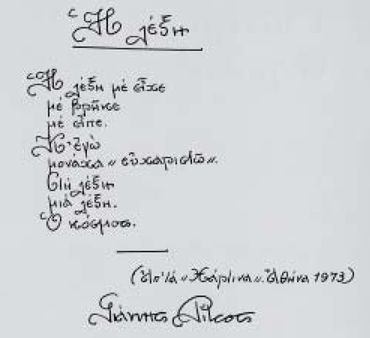 Ἡ λέξη
Ἡ λέξη μέ εἶχε
μέ βρῆκε
μέ εἶπε.
Κ' ἐγώ
μονάχα «εὐχαριστῶ».
Στή λέξη
μιά λέξη.
Ὁ κόσμος.
(ἀπ' τά «Χάρτινα». Ἀθήνα 1973)
Γιάννης Ρίτσος